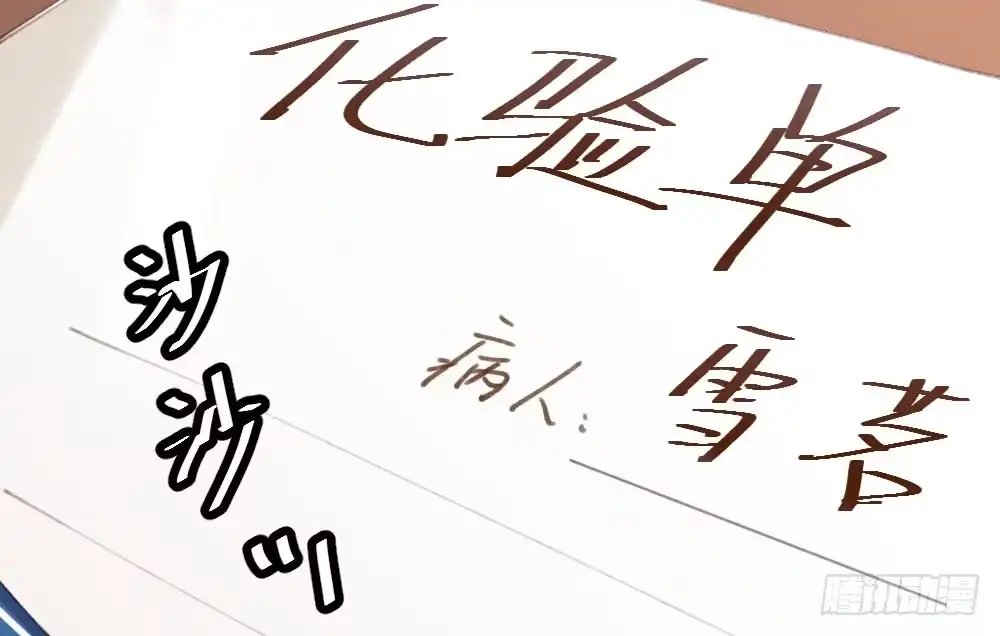 化验单
病人:雪茗
沙沙ッ
腾讯动漫